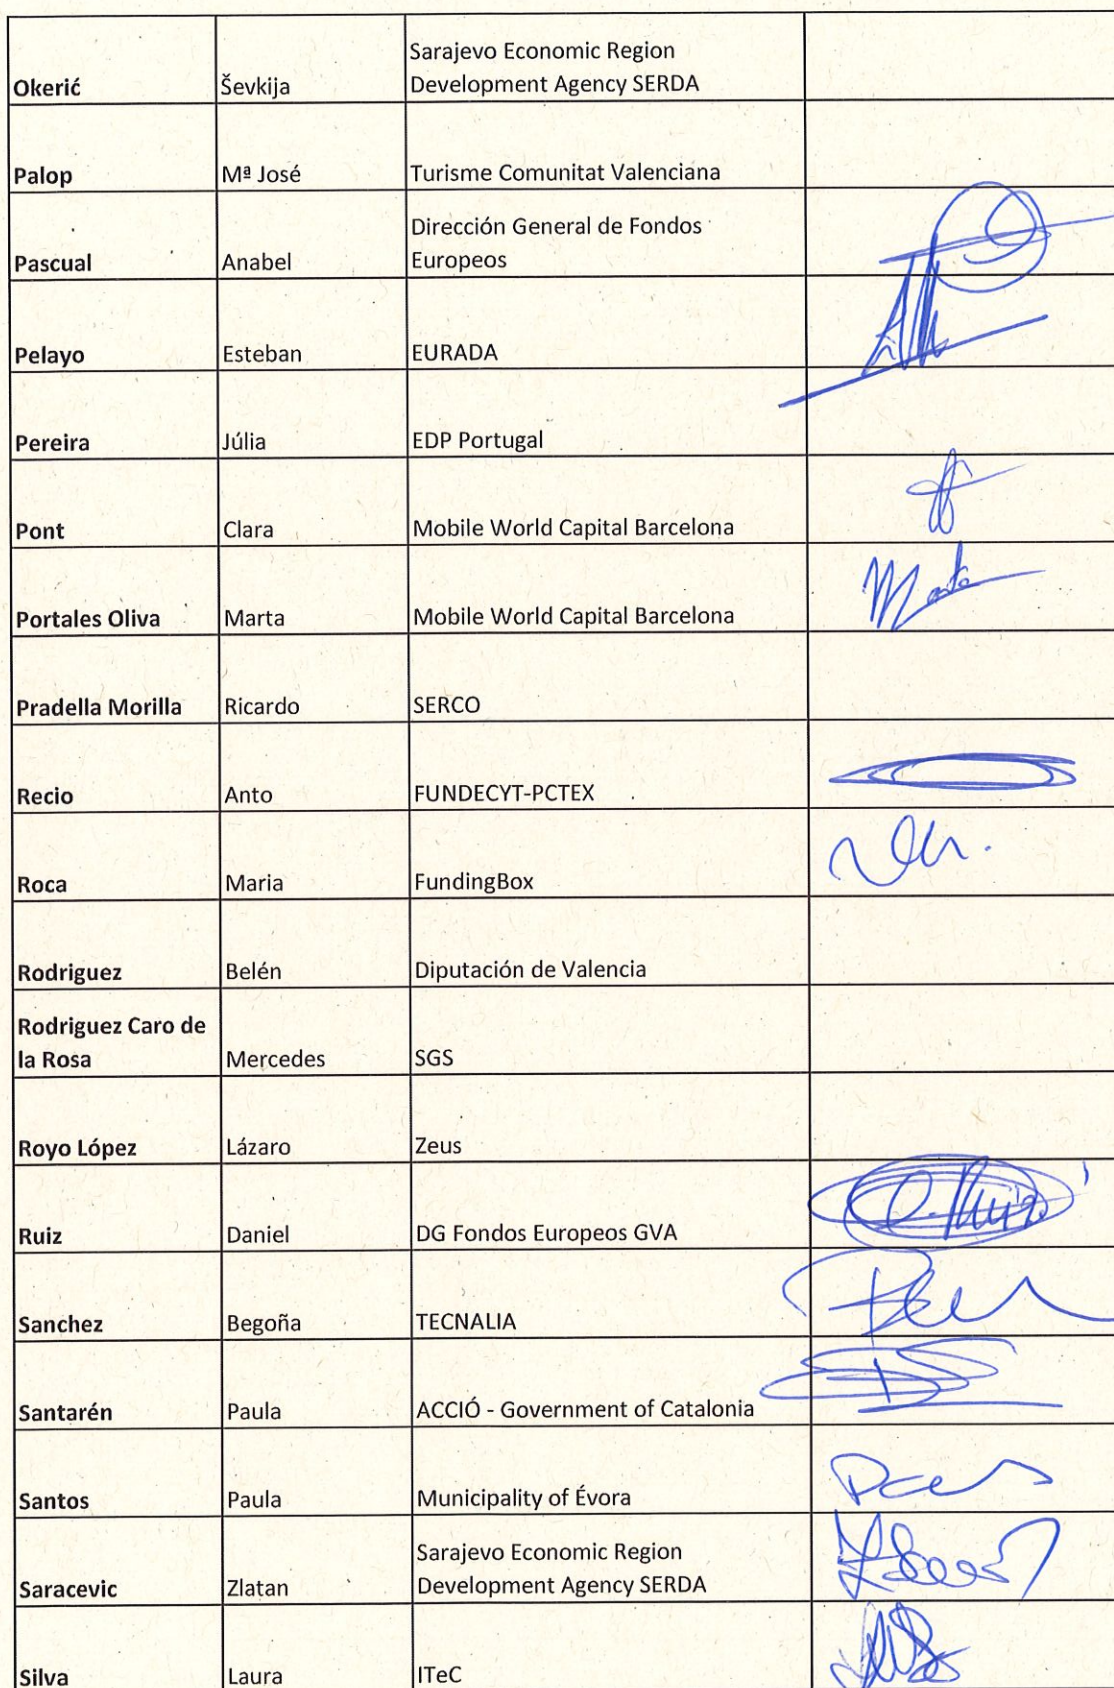 Okerić Ševkija Sarajevo Economic Region
Development Agency SERDA
Palop Mª José Turisme Comunitat Valenciana
Pascual Anabel Dirección General de Fondos
Europeos
Pelayo Esteban EURADA
Pereira Júlia EDP Portugal
Pont Clara Mobile World Capital Barcelona
Portales Oliva Marta Mobile World Capital Barcelona Marta
Pradella Morilla Ricardo SERCO
Recio Anto FUNDECYT-PCTEX
Roca Maria FundingBox
Rodriguez Belén Diputación de Valencia
Rodriguez Caro de
la Rosa Mercedes SGS
Royo López Lázaro Zeus
Ruiz Daniel DG Fondos Europeos GVA D. Ruiz
Sanchez Begoña TECNALIA
Santarén Paula ACCIÓ - Government of Catalonia
Santos Paula Municipality of Évora
Saracevic Zlatan Sarajevo Economic Region
Development Agency SERDA
Silva Laura ITeC